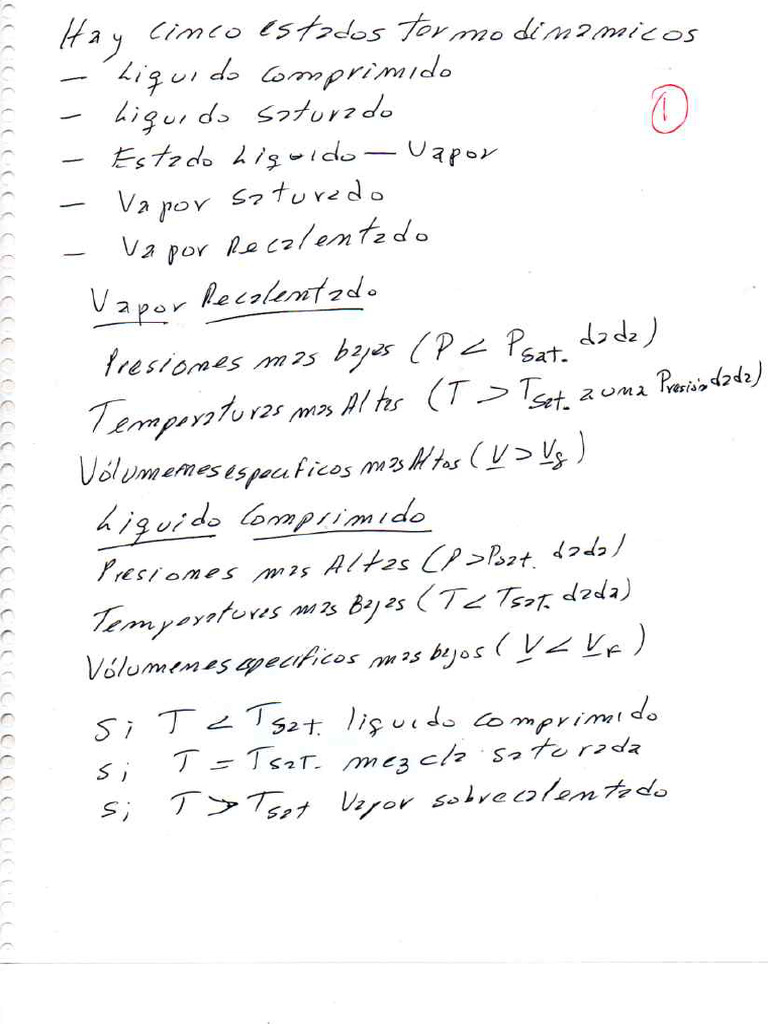 Hay cinco estados termodinamicos
– Liquido comprimido
– Liquido saturado
①
– Estado Liquido – Vapor
– Vapor saturado
– Vapor Recalentado
Vapor Recalentado
Presiones mas bajas (P < Psat. dada)
Temperaturas mas Altas (T > Tsat. a una Presión dada)
Vólumenes especificos mas Altos (V > Vg)
Liquido Comprimido
Presiones mas Altas (P > Psat. dada)
Temperaturas mas Bajas (T < Tsat. dada)
Vólumenes especíificos mas bajos (V < Vf)
Si T < Tsat. liquido comprimido
Si T = Tsat. mezcla saturada
Si T > Tsat Vapor sobrecalentado